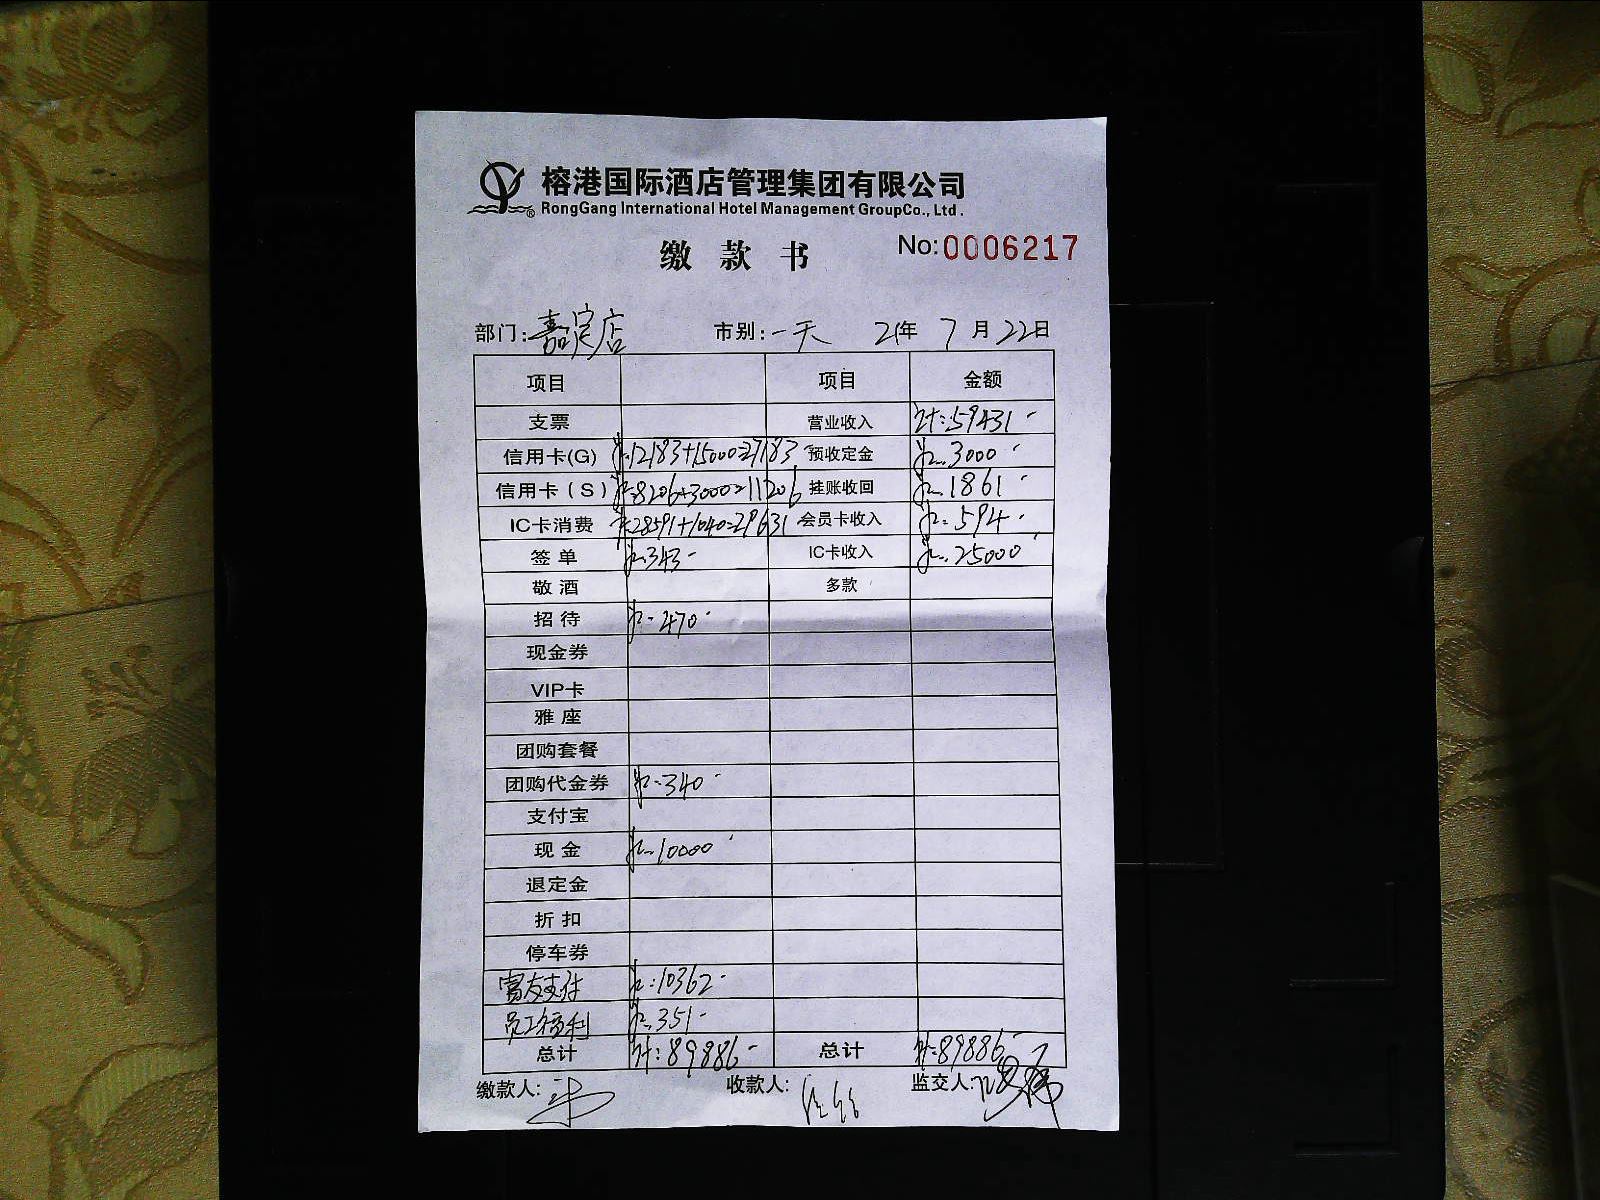 榕港国际酒店管理集团有限公司
RongGang International Hotel Management GroupCo., Ltd.
缴款书 No:0006217
部门:嘉定店 市别:一天 21年7月22日
项目 项目 金额
支票 营业收入 计:59431-
信用卡(G) 12183+15000=27183 预收定金 3000-
信用卡(S) 8206+3000=11206 挂账收回 1861-
IC卡消费 28591+1040=29631 会员卡收入 594-
签单 343- IC卡收入 25000-
敬酒 多款
招待 470-
现金券
VIP卡
雅座
团购套餐
团购代金券 340-
支付宝
现金 10000-
退定金
折扣
停车券
富友支付 10362-
员工福利 351-
总计 计:89886- 总计 计:89886-
缴款人: 收款人: 监交人: